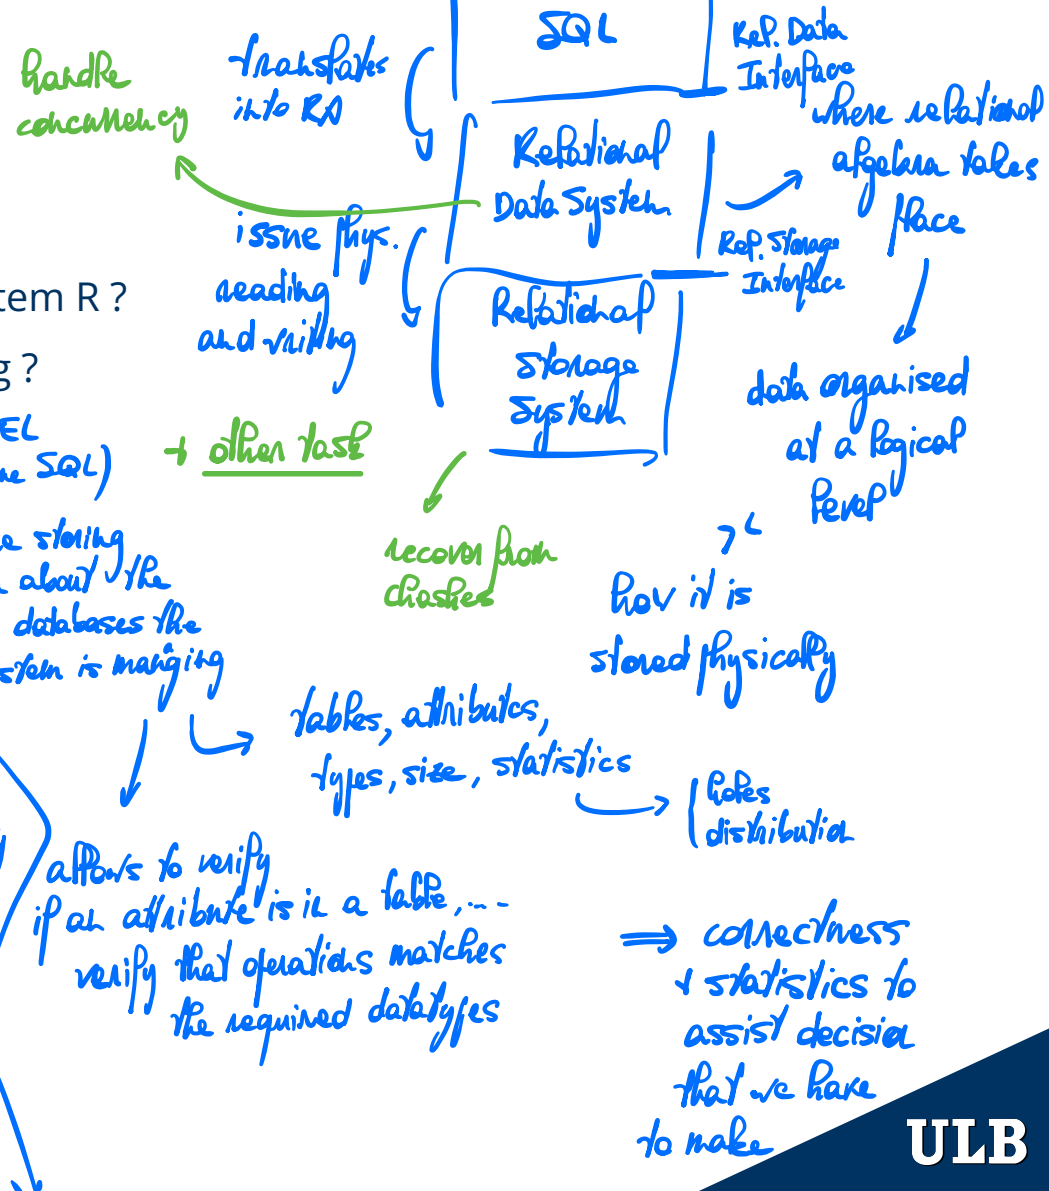 SQL
Rel. Data
Interface
handle
concurrency
translates
into RA
Relational
Data System
where relational
algebra takes
place
issue phys.
reading
and writing
Rel. Storage
Interface
tem R ?
g ?
Relational
Storage
System
data organised
at a logical
level
EL
ne SQL)
+ other task
recover from
chashes
how it is
stored physically
e storing
about the
databases the
stem is manging
tables, attributes,
types, size, statistics
holes
distribution
allows to verify
if an attribute is in a table,...
verify that operations matches
the required datatypes
⇒ correctness
+ statistics to
assist decision
that we have
to make
ULB